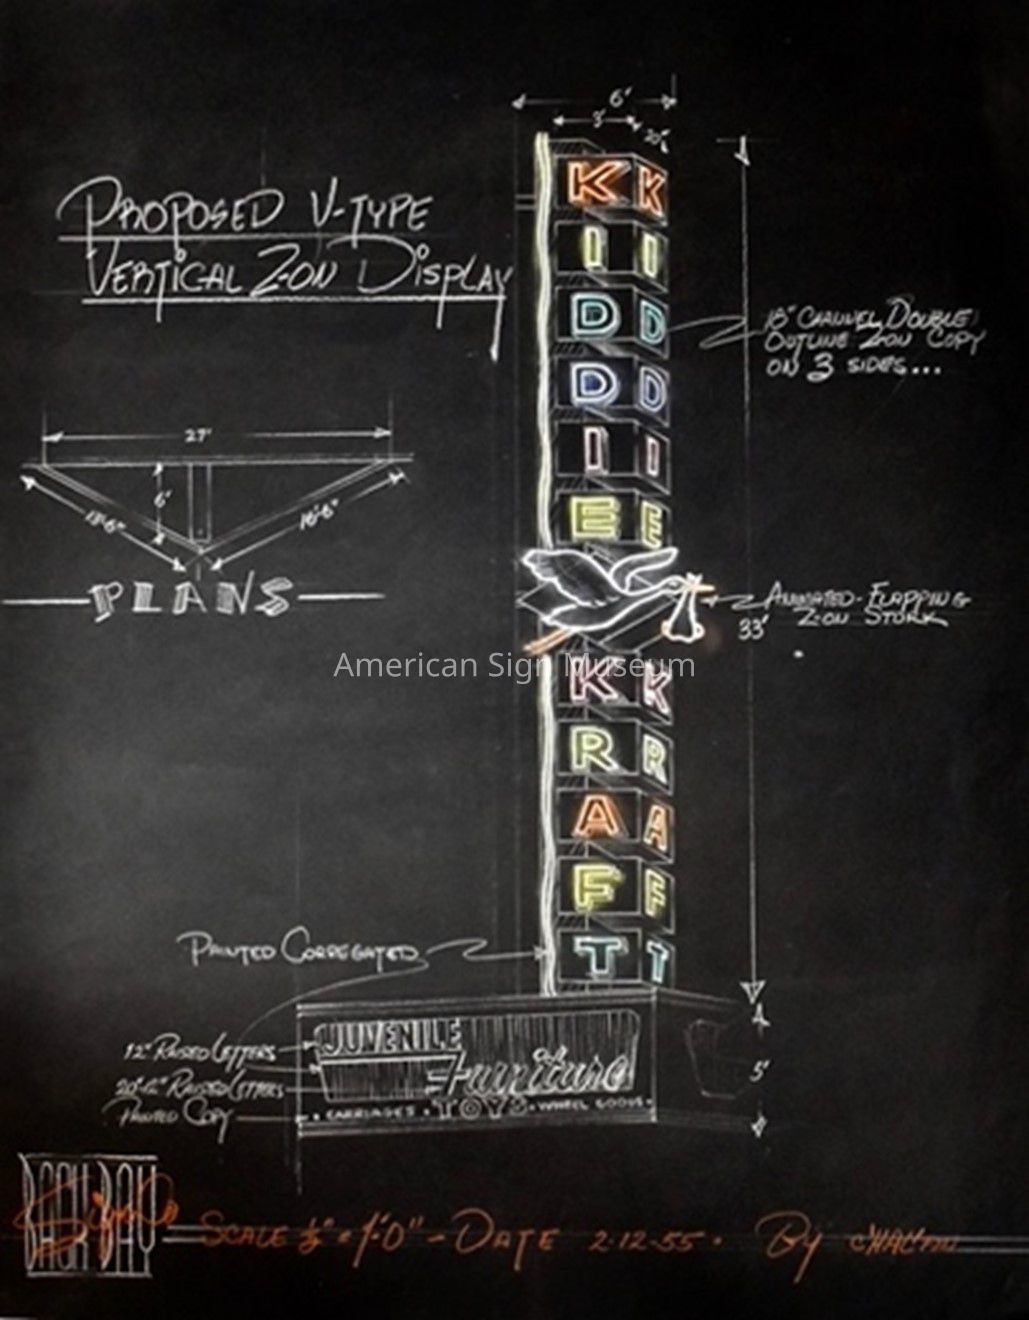 PROPOSED V-TYPE
VERTICAL Z-ON DISPLAY
6'
3'
KIDDIE KRAFT
KIDDIE KRAFT
18" CHANNEL DOUBLE
OUTLINE Z-ON COPY
ON 3 SIDES...
27'
6'
PLANS
ANIMATED-FLAPPING
Z-ON STORK
33'
American Sign Museum
PAINTED CORREGATED
JUVENILE
Furniture
TOYS
CARRIAGES • WHEEL GOODS
12" RAISED LETTERS
RAISED LETTERS
PAINTED COPY
5'
BACK BAY
Sign Co
SCALE ½" = 1'-0" - DATE 2-12-55. By